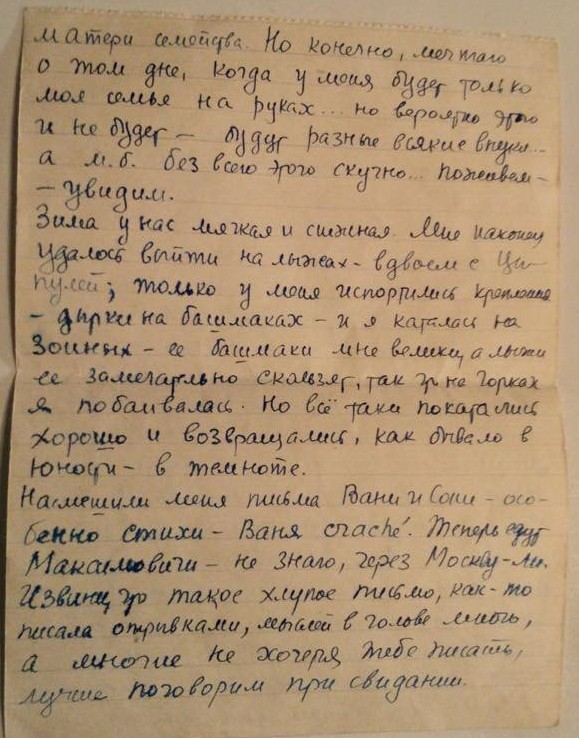 матери семейства. Но конечно, мечтаю
о том дне, когда у меня будет только
моя семья на руках... но вероятно этого
и не будет – будут разные всякие внуки...
а м.б. без всего этого скучно... поживем –
– увидим.
Зима у нас мягкая и снежная. Мне наконец
удалось выйти на лыжах – вдвоем с Цы-
пулей; только у меня испортились крепления
– дырки на башмаках – и я каталась на
Зоиных – ее башмаки мне велики, а лыжи
ее замечательно скользят, так что на горках
я побаивалась. Но всё таки покатались
хорошо и возвращались, как бывало в
юности – в темноте.
Насмешили меня письма Вани и Сони – осо-
бенно стихи – Ваня craché. Теперь едут
Максимовичи – не знаю, через Москву-ли.
Извини, что такое хлупое письмо, как-то
писала отрывками, мыслей в голове много,
а многие не хочется тебе писать,
лучше поговорим при свидании.